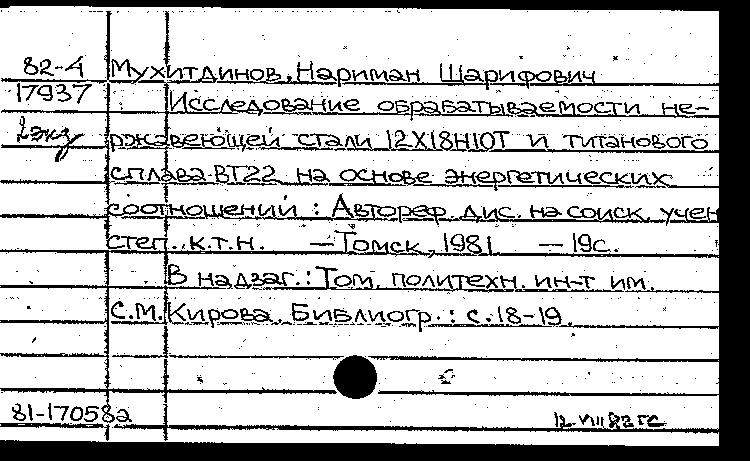 82-4 Мухитдинов, Нариман Шарифович
17937 Исследование обрабатываемости не-
2 экз ржавеющей стали 12Х18Н10Т и титанового
сплава ВТ22 на основе энергетических
соотношений : Автореф. дис. на соиск. учен
степ. к.т.н. — Томск, 1981 — 19с.
В надзаг.: Том. политехн. ин-т им.
С.М. Кирова. Библиогр.: с.18-19.
81-17058а 12 VIII 82 ГС